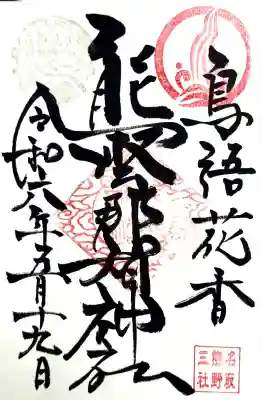 鳥語花香
熊野那智神社
令和六年五月十九日
名取
熊野
三社